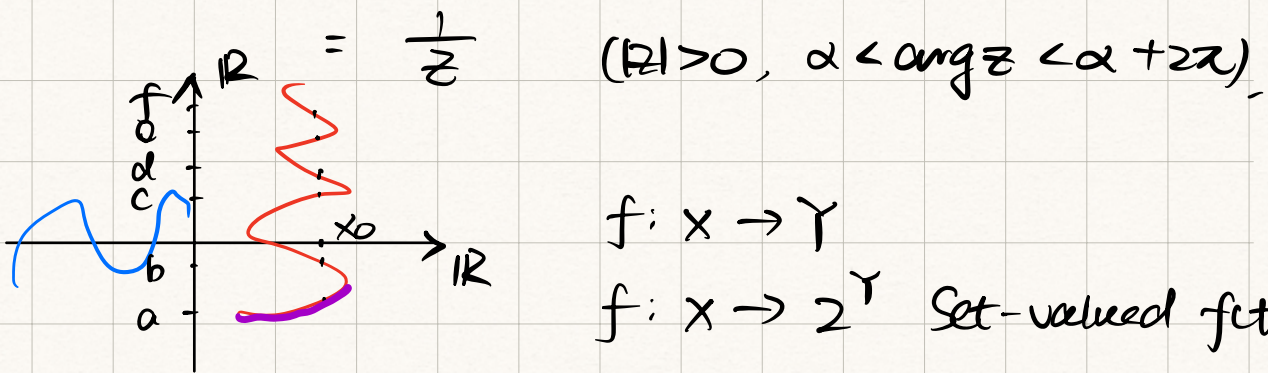 = 1/z (|z|>0, α < arg z < α + 2π).
ℝ
f
e
d
c
x0
b
ℝ
a
f: X → Y
f: X → 2^Y Set-valued fct